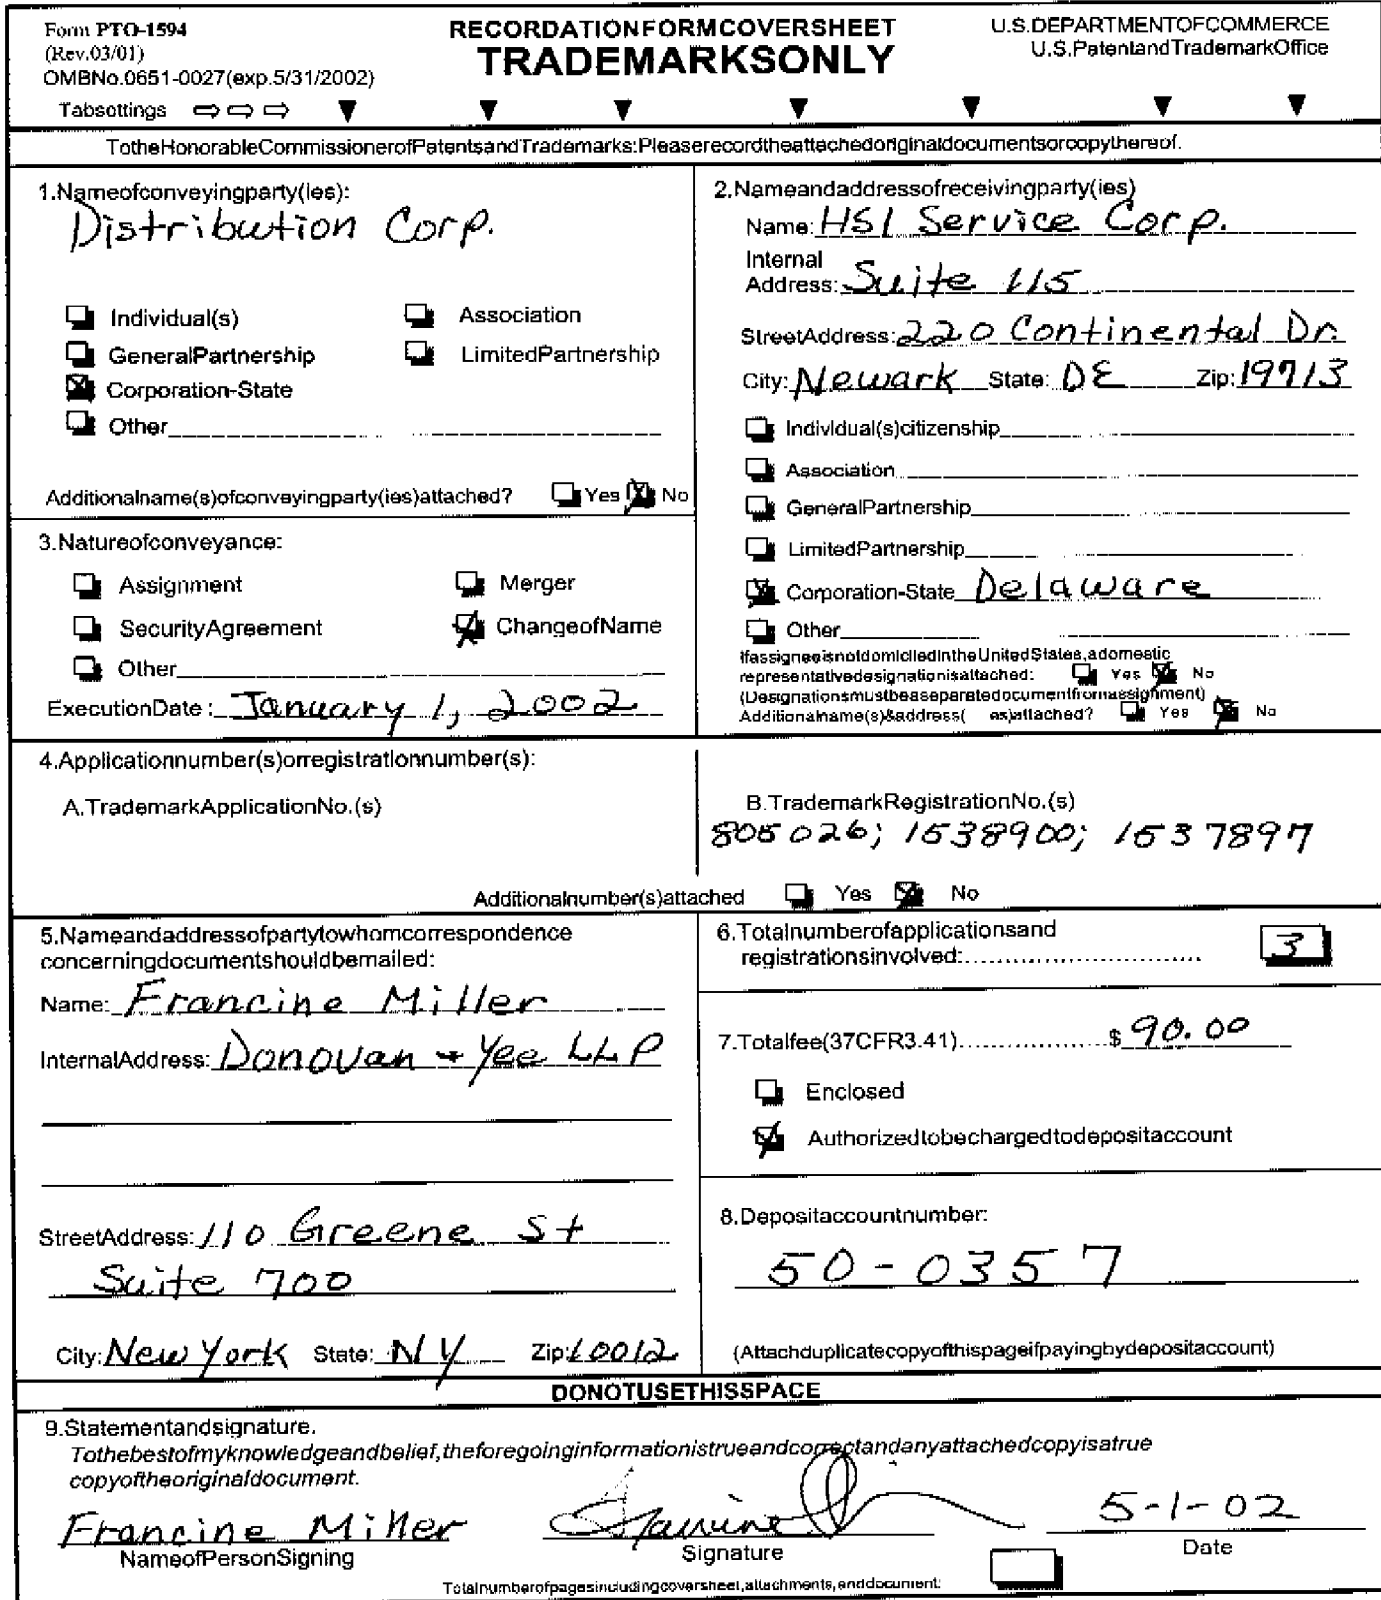 Form PTO-1594
(Rev.03/01)
OMBNo.0651-0027(exp.5/31/2002)
Tabsettings
RECORDATIONFORMCOVERSHEET
TRADEMARKSONLY
U.S.DEPARTMENTOFCOMMERCE
U.S.PatentandTrademarkOffice
TotheHonorableCommissionerofPatentsandTrademarks:Pleaserecordtheattachedoriginaldocumentsorcopythereof.
1.Nameofconveyingparty(ies):
Distribution Corp.
Individual(s) Association
GeneralPartnership LimitedPartnership
Corporation-State
Other
Additionalname(s)ofconveyingparty(ies)attached? Yes No
2.Nameandaddressofreceivingparty(ies)
Name: HSI Service Corp.
Internal
Address: Suite 115
StreetAddress: 220 Continental Dr.
City: Newark State: DE Zip: 19713
Individual(s)citizenship
Association
GeneralPartnership
LimitedPartnership
Corporation-State Delaware
Other
Ifassigneeisnotdomiciledinthe UnitedStates,adomestic
representativedesignationisattached: Yes No
(Designationsmustbeaseparatedocumentfromassignment)
Additionalname(s)&address( es)attached? Yes No
3.Natureofconveyance:
Assignment Merger
SecurityAgreement ChangeofName
Other
ExecutionDate: January 1, 2002
4.Applicationnumber(s)orregistrationnumber(s):
A.TrademarkApplicationNo.(s)
B.TrademarkRegistrationNo.(s)
805026; 1538900; 1537897
Additionalnumber(s)attached Yes No
5.Nameandaddressofpartytowhomcorrespondence
concerningdocumentshouldbemailed:
Name: Francine Miller
InternalAddress: Donovan + Yee LLP
StreetAddress: 110 Greene St
Suite 700
City: New York State: NY Zip: 10012
6.Totalnumberofapplicationsand
registrationsinvolved:.............................. 3
7.Totalfee(37CFR3.41)...................$ 90.00
Enclosed
Authorizedtobechargedtodepositaccount
8.Depositaccountnumber:
50-0357
(Attachduplicatecopyofthispageifpayingbydepositaccount)
DONOTUSETHISSPACE
9.Statementandsignature.
Tothebestofmyknowledgeandbelief,theforegoinginformationistrueandcorrectandanyattachedcopyisatrue
copyoftheoriginaldocument.
Francine Miller 5-1-02
NameofPersonSigning Signature Date
Totalnumberofpagesincludingcoversheet,attachments,anddocument: